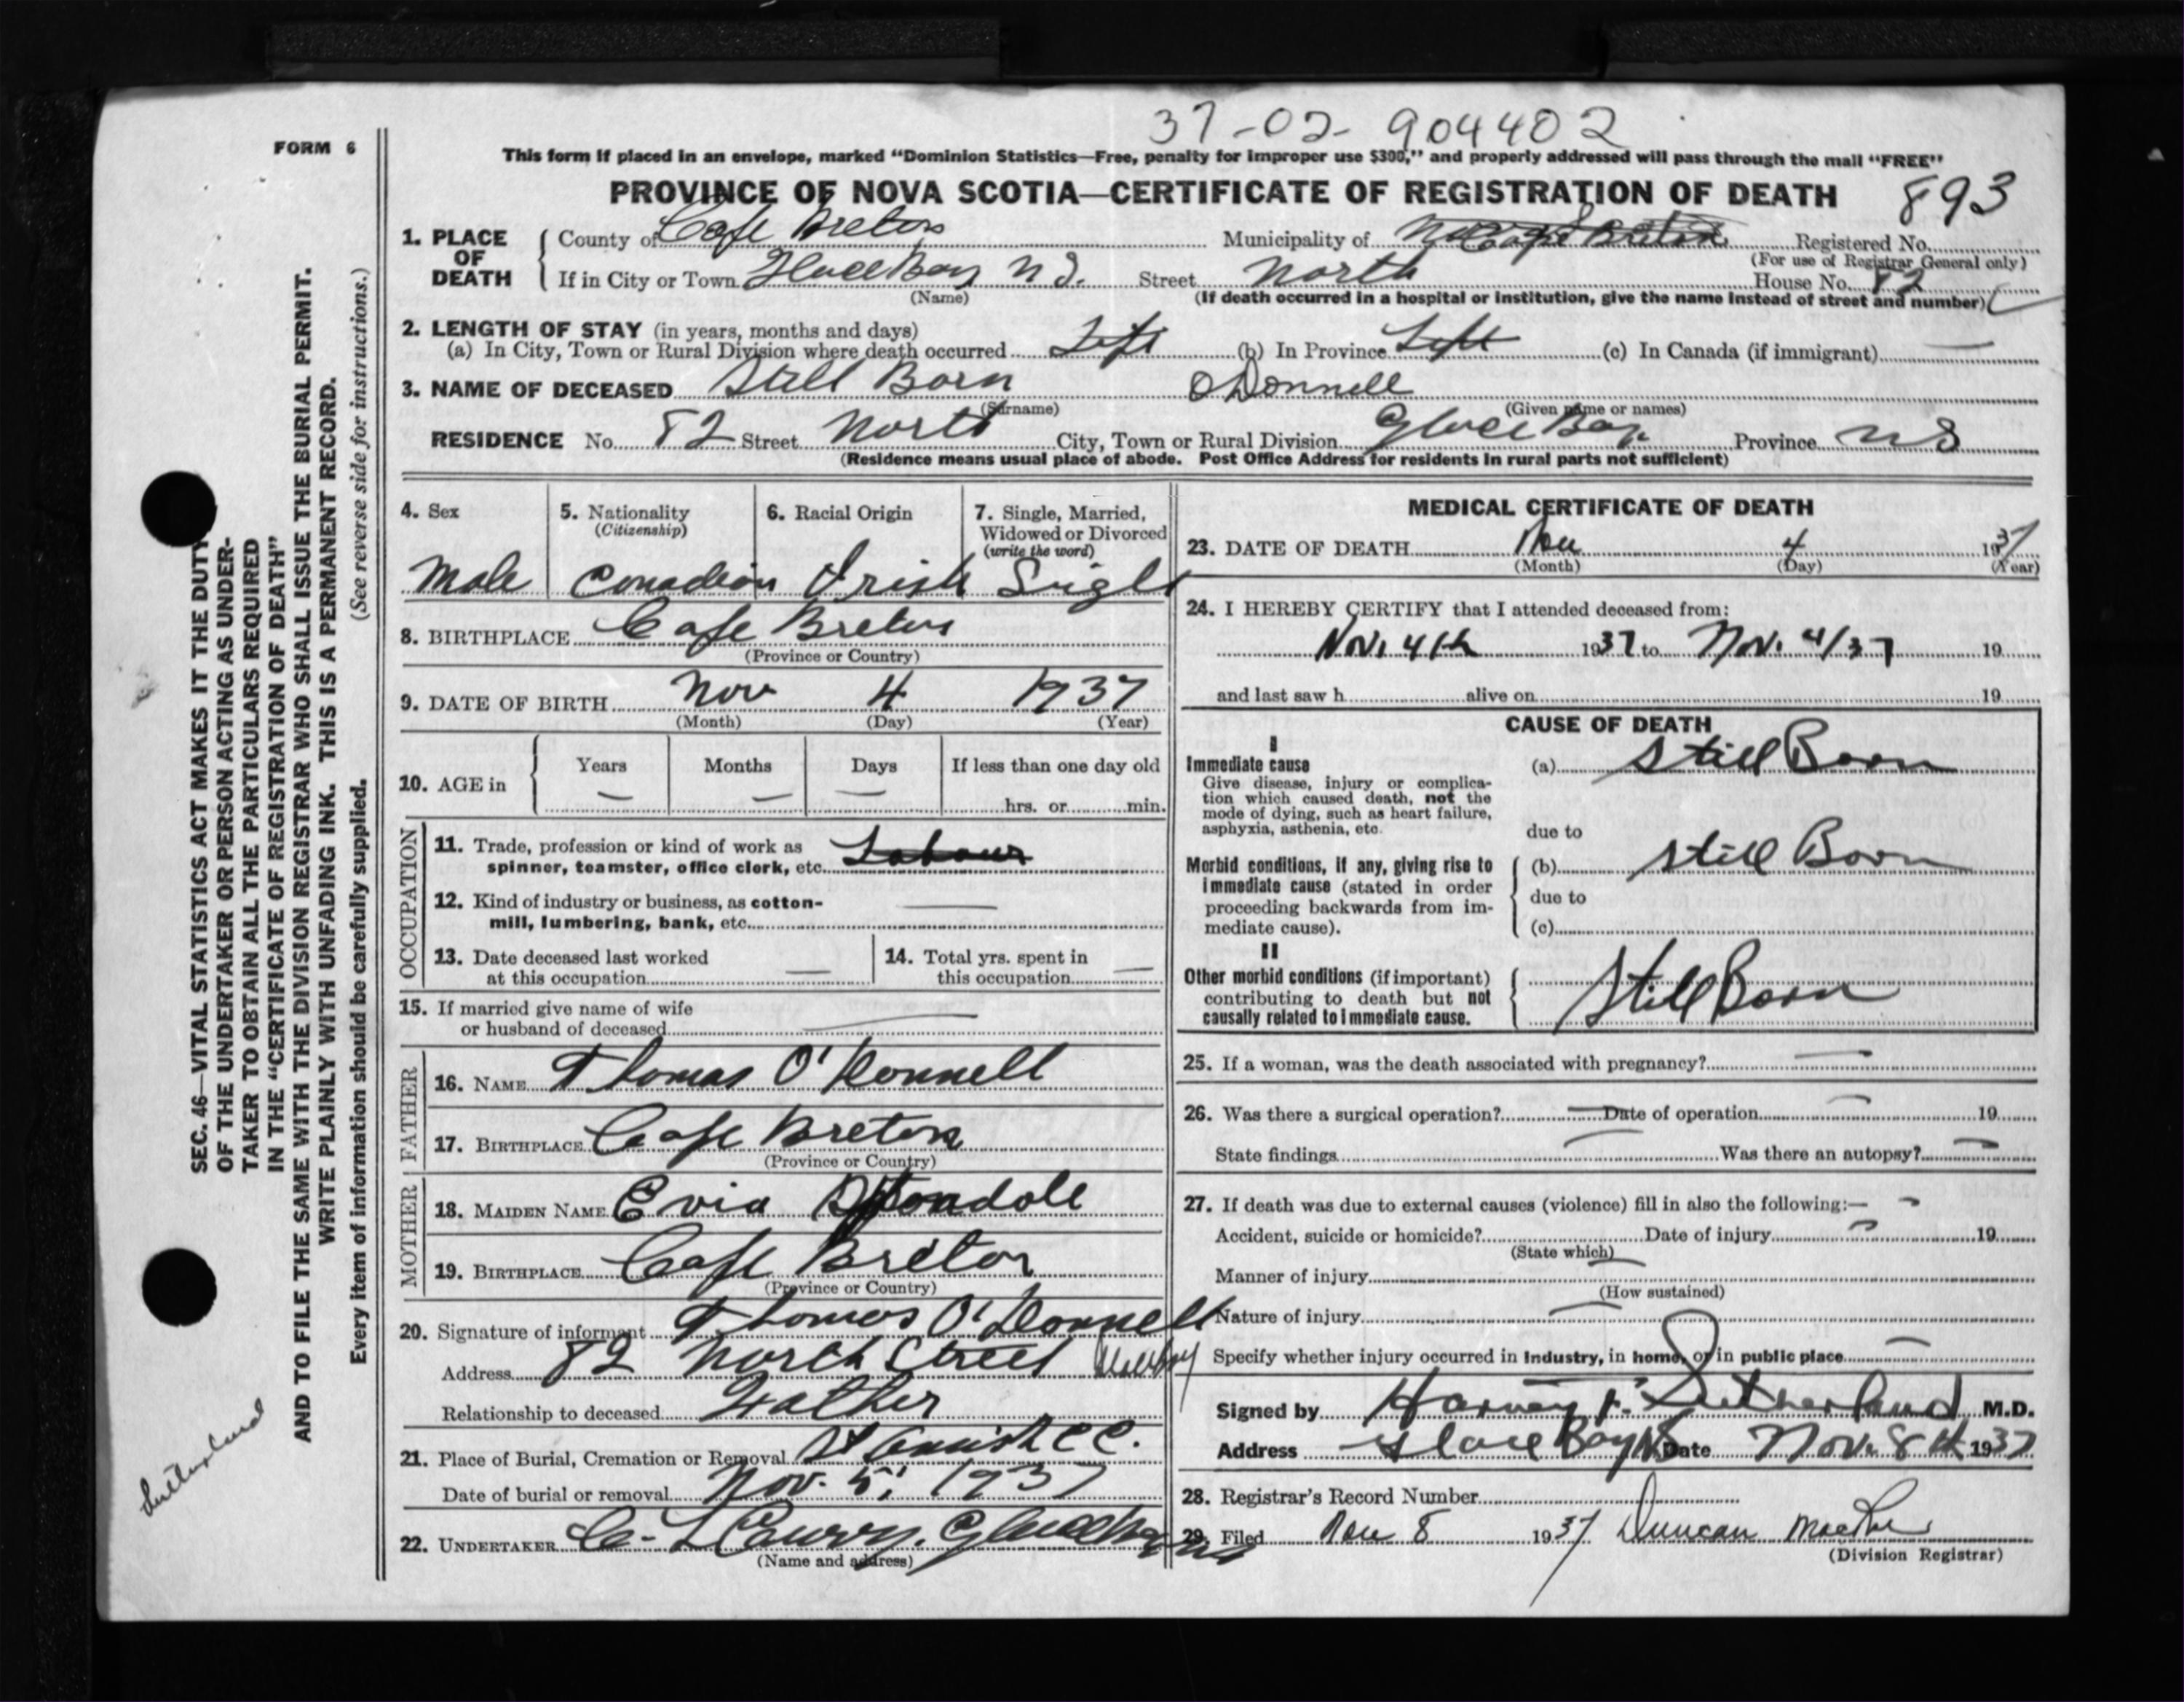 37-02-904402
FORM 6
This form if placed in an envelope, marked "Dominion Statistics—Free, penalty for improper use $300," and properly addressed will pass through the mail "FREE"
PROVINCE OF NOVA SCOTIA—CERTIFICATE OF REGISTRATION OF DEATH 893
1. PLACE OF DEATH County of Cape Breton Municipality of Cape Breton Registered No.
(For use of Registrar General only)
If in City or Town Glace Bay N.S. Street North House No. 82
(Name) (If death occurred in a hospital or institution, give the name instead of street and number)
2. LENGTH OF STAY (in years, months and days)
(a) In City, Town or Rural Division where death occurred Life (b) In Province Life (c) In Canada (if immigrant) —
3. NAME OF DECEASED Still Born O'Donnell
(Surname) (Given name or names)
RESIDENCE No. 82 Street North City, Town or Rural Division Glace Bay Province N S
(Residence means usual place of abode. Post Office Address for residents in rural parts not sufficient)
4. Sex 5. Nationality (Citizenship) 6. Racial Origin 7. Single, Married, Widowed or Divorced (write the word)
Male Canadian Irish Single
8. BIRTHPLACE Cape Breton
(Province or Country)
9. DATE OF BIRTH Nov 4 1937
(Month) (Day) (Year)
10. AGE in Years Months Days If less than one day old
— — — hrs. or min.
OCCUPATION
11. Trade, profession or kind of work as spinner, teamster, office clerk, etc. Labour
12. Kind of industry or business, as cotton-mill, lumbering, bank, etc. —
13. Date deceased last worked at this occupation — 14. Total yrs. spent in this occupation —
15. If married give name of wife or husband of deceased —
FATHER
16. NAME Thomas O'Donnell
17. BIRTHPLACE Cape Breton
(Province or Country)
MOTHER
18. MAIDEN NAME Evia
19. BIRTHPLACE Cape Breton
(Province or Country)
20. Signature of informant Thomas O'Donnell
Address 82 North Street
Relationship to deceased Father
21. Place of Burial, Cremation or Removal
Date of burial or removal Nov. 5, 1937
22. UNDERTAKER Glace Bay
(Name and address)
MEDICAL CERTIFICATE OF DEATH
23. DATE OF DEATH Nov 4 1937
(Month) (Day) (Year)
24. I HEREBY CERTIFY that I attended deceased from:
Nov. 4th 1937 to Nov. 4/37 19
and last saw h alive on 19
CAUSE OF DEATH
I
Immediate cause (a) Still Born
Give disease, injury or complication which caused death, not the mode of dying, such as heart failure, asphyxia, asthenia, etc.
due to
Morbid conditions, if any, giving rise to immediate cause (stated in order proceeding backwards from immediate cause). (b) Still Born
due to
(c)
II
Other morbid conditions (if important) contributing to death but not causally related to immediate cause. Still Born
25. If a woman, was the death associated with pregnancy? —
26. Was there a surgical operation? — Date of operation — 19
State findings — Was there an autopsy? —
27. If death was due to external causes (violence) fill in also the following:—
Accident, suicide or homicide? Date of injury 19
(State which)
Manner of injury
(How sustained)
Nature of injury
Specify whether injury occurred in industry, in home, or in public place
Signed by Harvey F. Sutherland M.D.
Address Glace Bay NS Date Nov. 8th 1937
28. Registrar's Record Number
29. Filed Nov 8 1937 Duncan
(Division Registrar)
SEC. 46—VITAL STATISTICS ACT MAKES IT THE DUTY
OF THE UNDERTAKER OR PERSON ACTING AS UNDER-
TAKER TO OBTAIN ALL THE PARTICULARS REQUIRED
IN THE "CERTIFICATE OF REGISTRATION OF DEATH"
AND TO FILE THE SAME WITH THE DIVISION REGISTRAR WHO SHALL ISSUE THE BURIAL PERMIT.
WRITE PLAINLY WITH UNFADING INK. THIS IS A PERMANENT RECORD.
Every item of information should be carefully supplied. (See reverse side for instructions.)
Sutherland